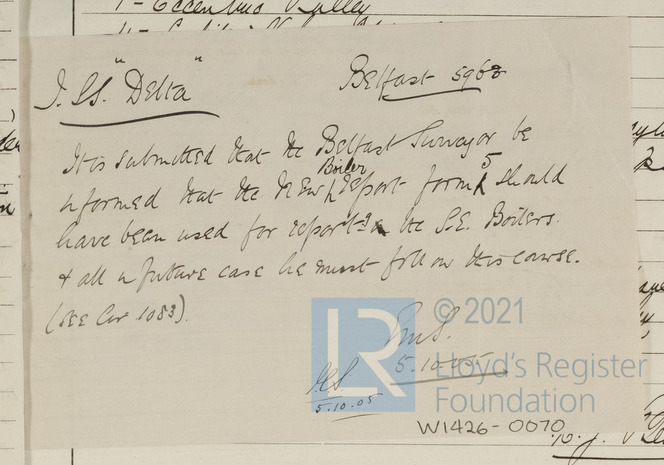 1 - Eccentric Pulley
I. SS. "Delta"
Belfast 5968
It is submitted that the Belfast Surveyor be
informed that the New Boiler report form 5 should
have been used for reportg the S.E. Boilers.
& all in future case he must follow this course.
(see Cir 1083).
5.10.05
5.10.05
LR
© 2021
Lloyd's Register
Foundation
W1426-0070